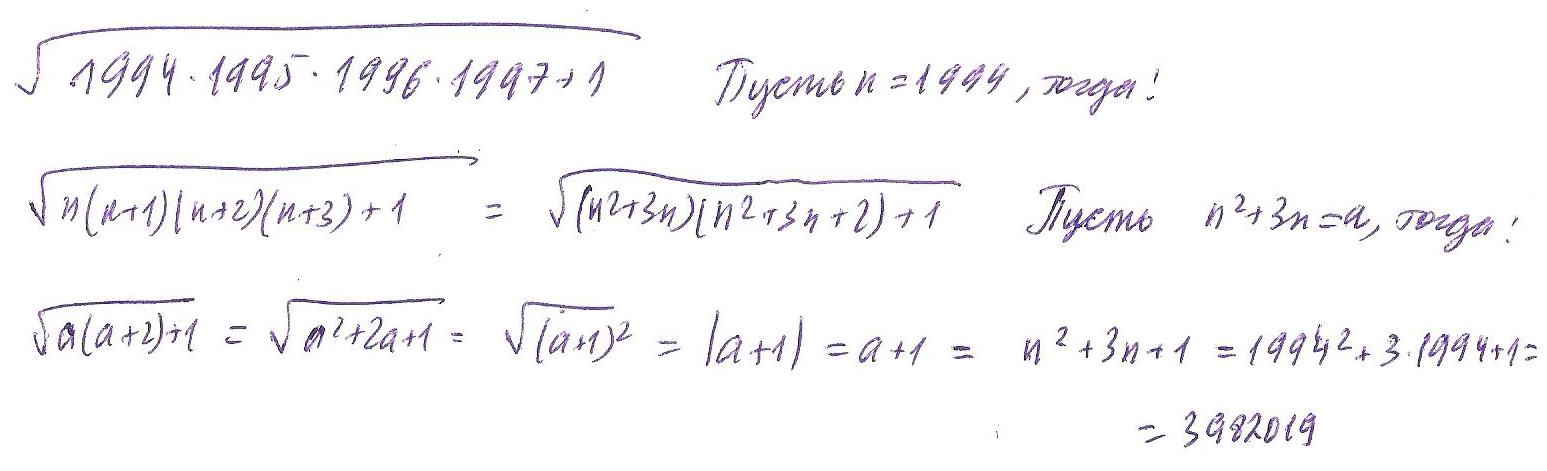 √1994·1995·1996·1997+1 Пусть n=1994, тогда:
√n(n+1)(n+2)(n+3)+1 = √(n²+3n)(n²+3n+2)+1 Пусть n²+3n=a, тогда:
√a(a+2)+1 = √a²+2a+1 = √(a+1)² = |a+1| = a+1 = n²+3n+1 = 1994²+3·1994+1=
= 3982019